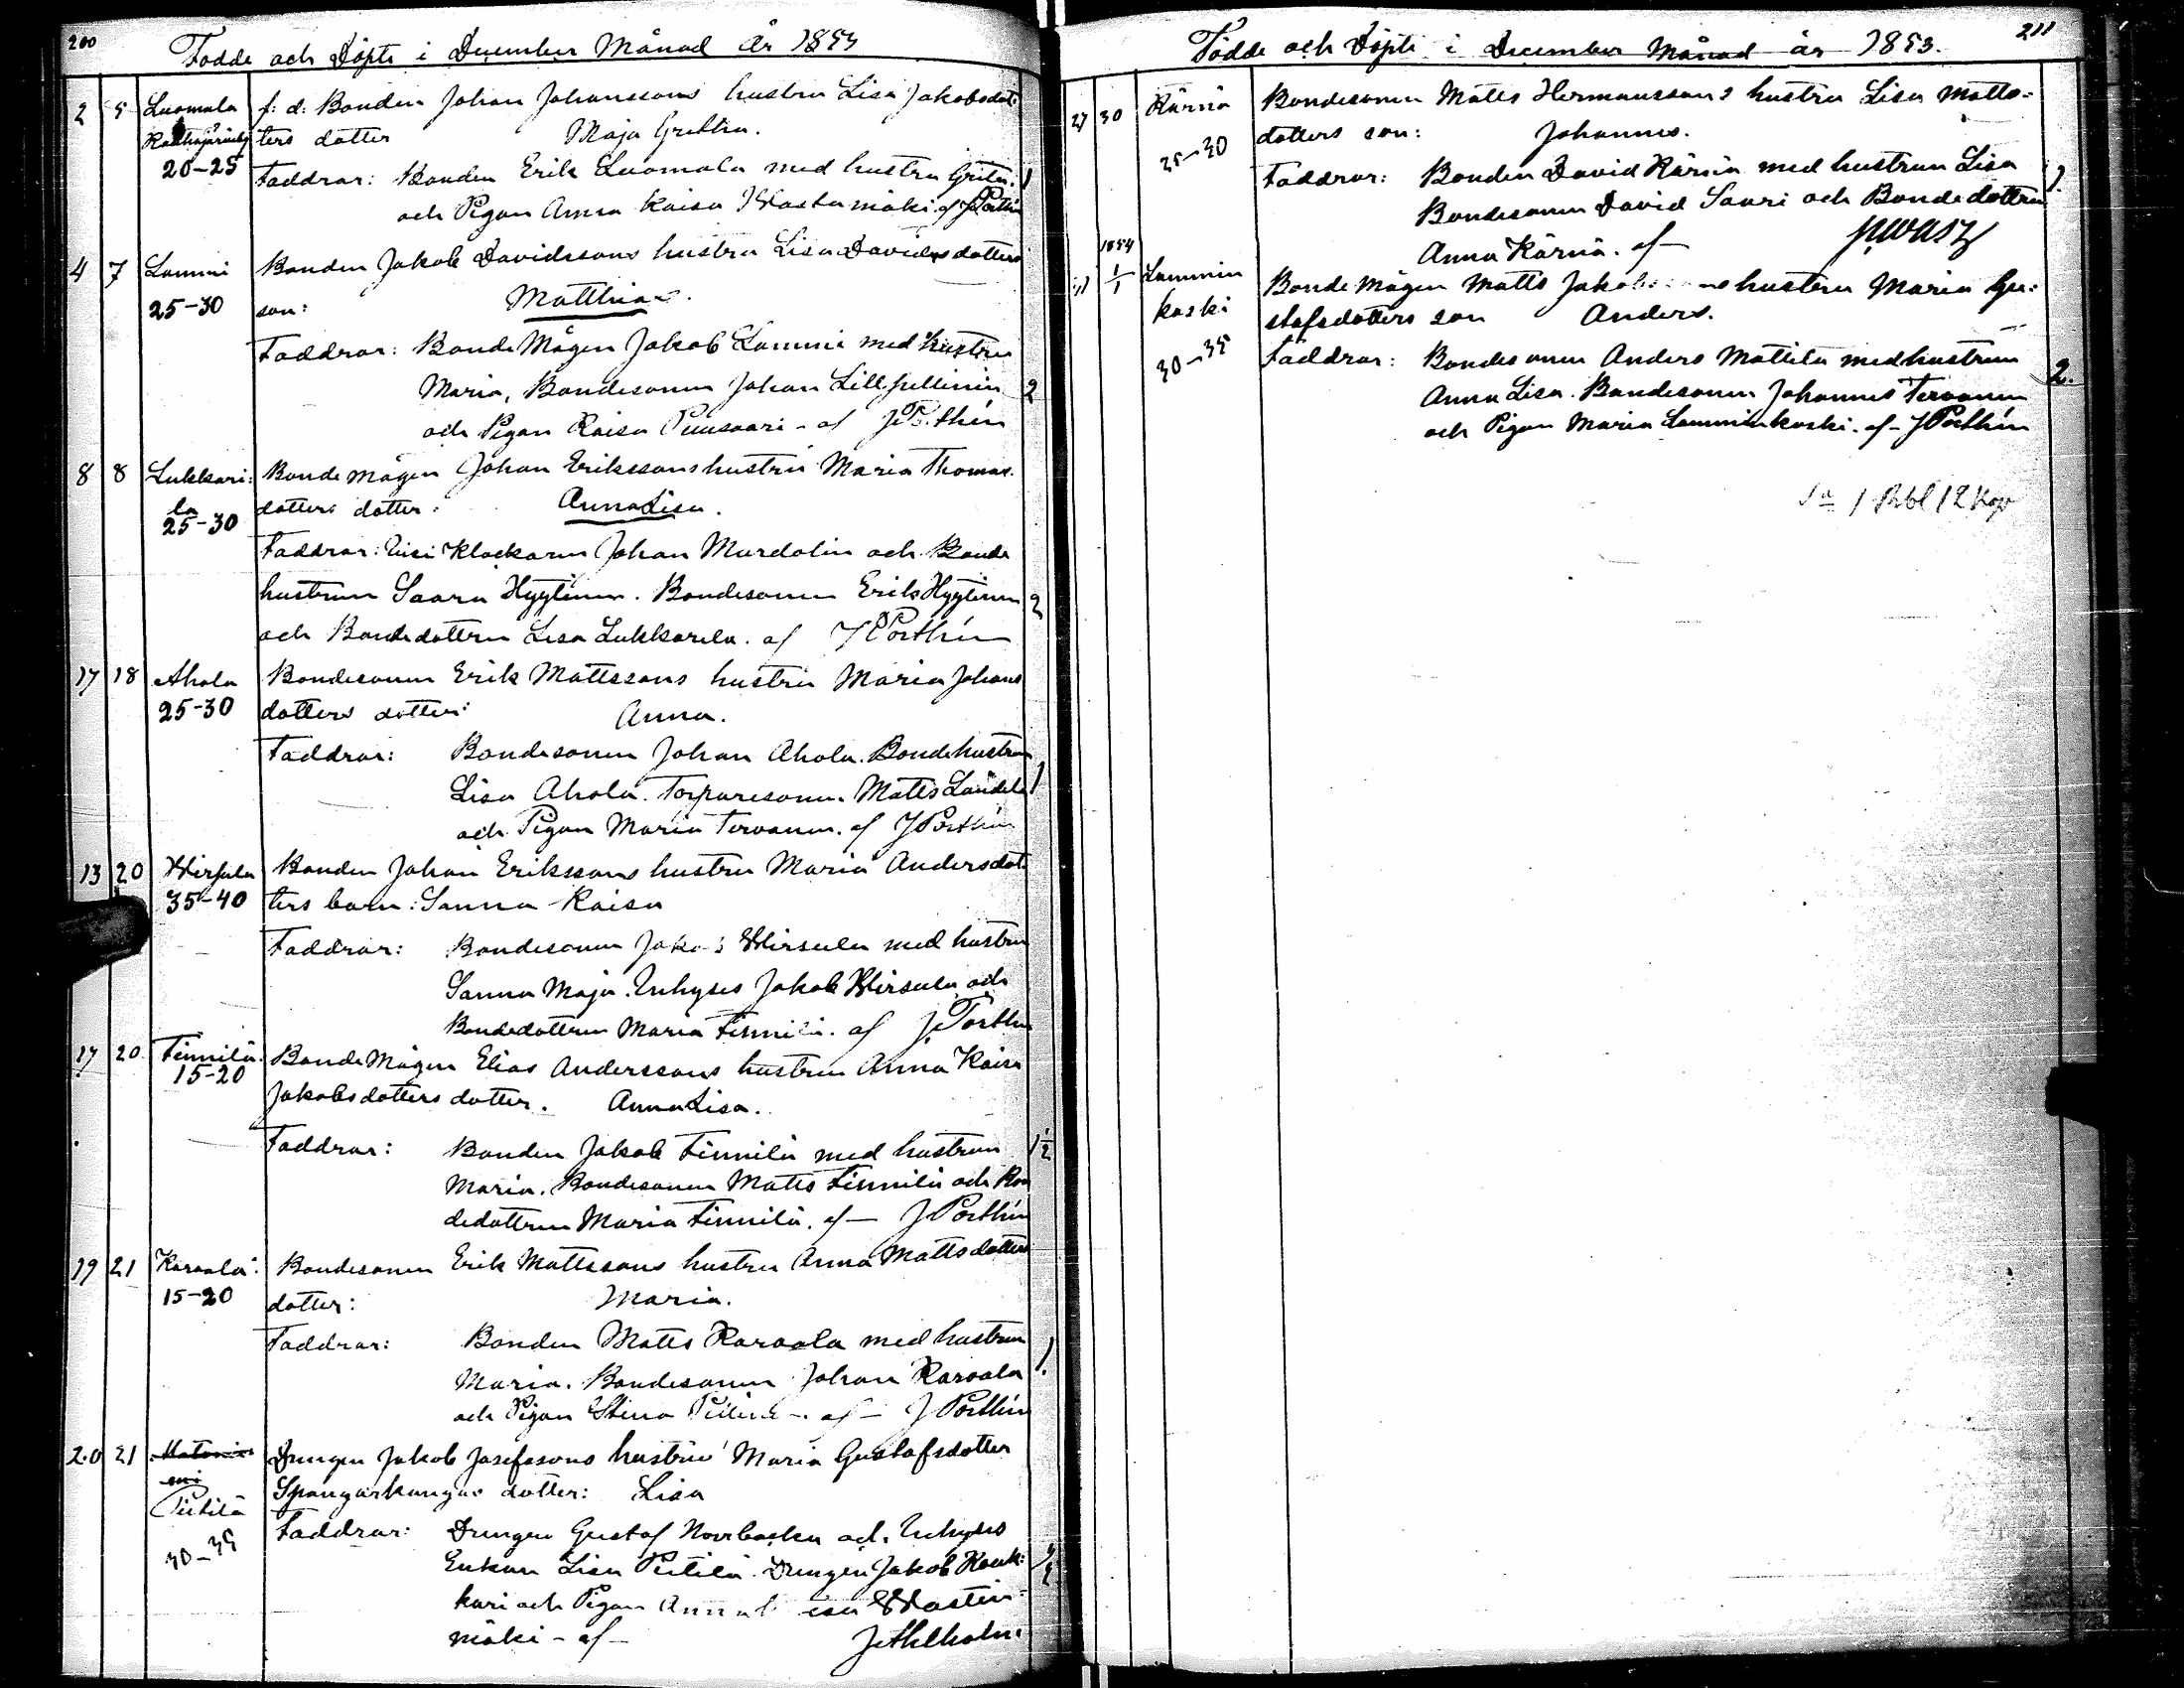 200
Födde och Döpte i December Månad år 1853
2 5 Luomala f: d: Bonden Johan Johanssons hustru Lisa Jakobsdot:
ters dotter Maja Gretha.
20-25 Faddrar: Bonden Erik Luomala med hustru Greta. 1
och Pigan Anna Kaisa Wastamäki. af J Porthin
4 7 Lammi Bonden Jakob Davidssons hustru Lisa Davidsdotters
25-30 son: Matthias.
Faddrar: Bonde Mågen Jakob Lammi med hustru
Maria, Bondesonen Johan Lillpellinin 2
och Pigan Kaisa Puusaari - af J Porthin
8 8 Lukkari: Bonde mågen Johan Erikssons hustru Maria Thomas.
la dotters dotter: Anna Lisa.
25-30
Faddrar: Vice Klockaren Johan Murdolin och Bonde
hustrun Saara Hyytinen. Bondesonen Erik Hyytinen 2
och Bondedottren Lisa Lukkarila. af J Porthin
17 18 Ahola Bondesonen Erik Mattssons hustru Maria Johans
25-30 dotters dotter: Anna.
Faddrar: Bondesonen Johan Ahola. Bondehustrun
Lisa Ahola. Torparesonen Matts Landela 1
och Pigan Maria Tervonen. af J Porthin
13 20 Wirsula Bonden Johan Erikssons hustru Maria Andersdot
35-40 ters barn: Sanna Kaisa
Faddrar: Bondesonen Jakob Wirsula med hustru
Sanna Maja. Inhyses Jakob Wirsula och
Bondedottren Maria Finnilä. af J. Porthin
17 20 Finnilä. Bonde Mågen Elias Anderssons hustru Anna Kaisa
15-20
Jakobsdotters dotter. Anna Lisa.
Faddrar: Bonden Jakob Finnilä med hustrun 1½
Maria. Bondesonen Matts Finnilä och Bon
dedottren Maria Finnilä. af — J Porthin
19 21 Karvala: Bondesonen Erik Mattssons hustru Anna Mattsdotters
15-20 dotter: Maria.
Faddrar: Bonden Matts Karvala med hustrun
Maria. Bondesonen Johan Karvala 1.
och Pigan Stina af - J Porthin
20 21 Drengen Jakob Josefssons hustru Maria Gustafsdotter
Piitilä Spångarkangas dotter: Lisa
30-35 Faddrar: Drengen Gustaf Norrbacka och Inhyses
Enkan Lisa Piitilä. Drengen Jakob Kauk: ½
kari och Pigan Anna Lisa Wasten
mäki - af - J Ahlholm.
211
Födde och Döpte i December Månad år 1853.
27 30 Kärnä Bondesonen Matts Hermanssons hustru Lisa Matts=
25-30 dotters son: Johannes.
Faddrar: Bonden David Kärnä med hustrun Lisa
Bondesonen David Saari och Bondedottren 1.
Anna Kärnä. af - J. Wasz
1854
1/1 Lammin Bonde Mågen Matts Jakobssons hustru Maria Gu:
koski stafsdotters son Anders.
30-35 Faddrar: Bondesonen Anders Mattila med hustrun
Anna Lisa. Bondesonen Johannes Tervonen 2.
och Pigan Maria Lamminkoski. af - J Porthin
Sa 1 Rbl 12 Kop